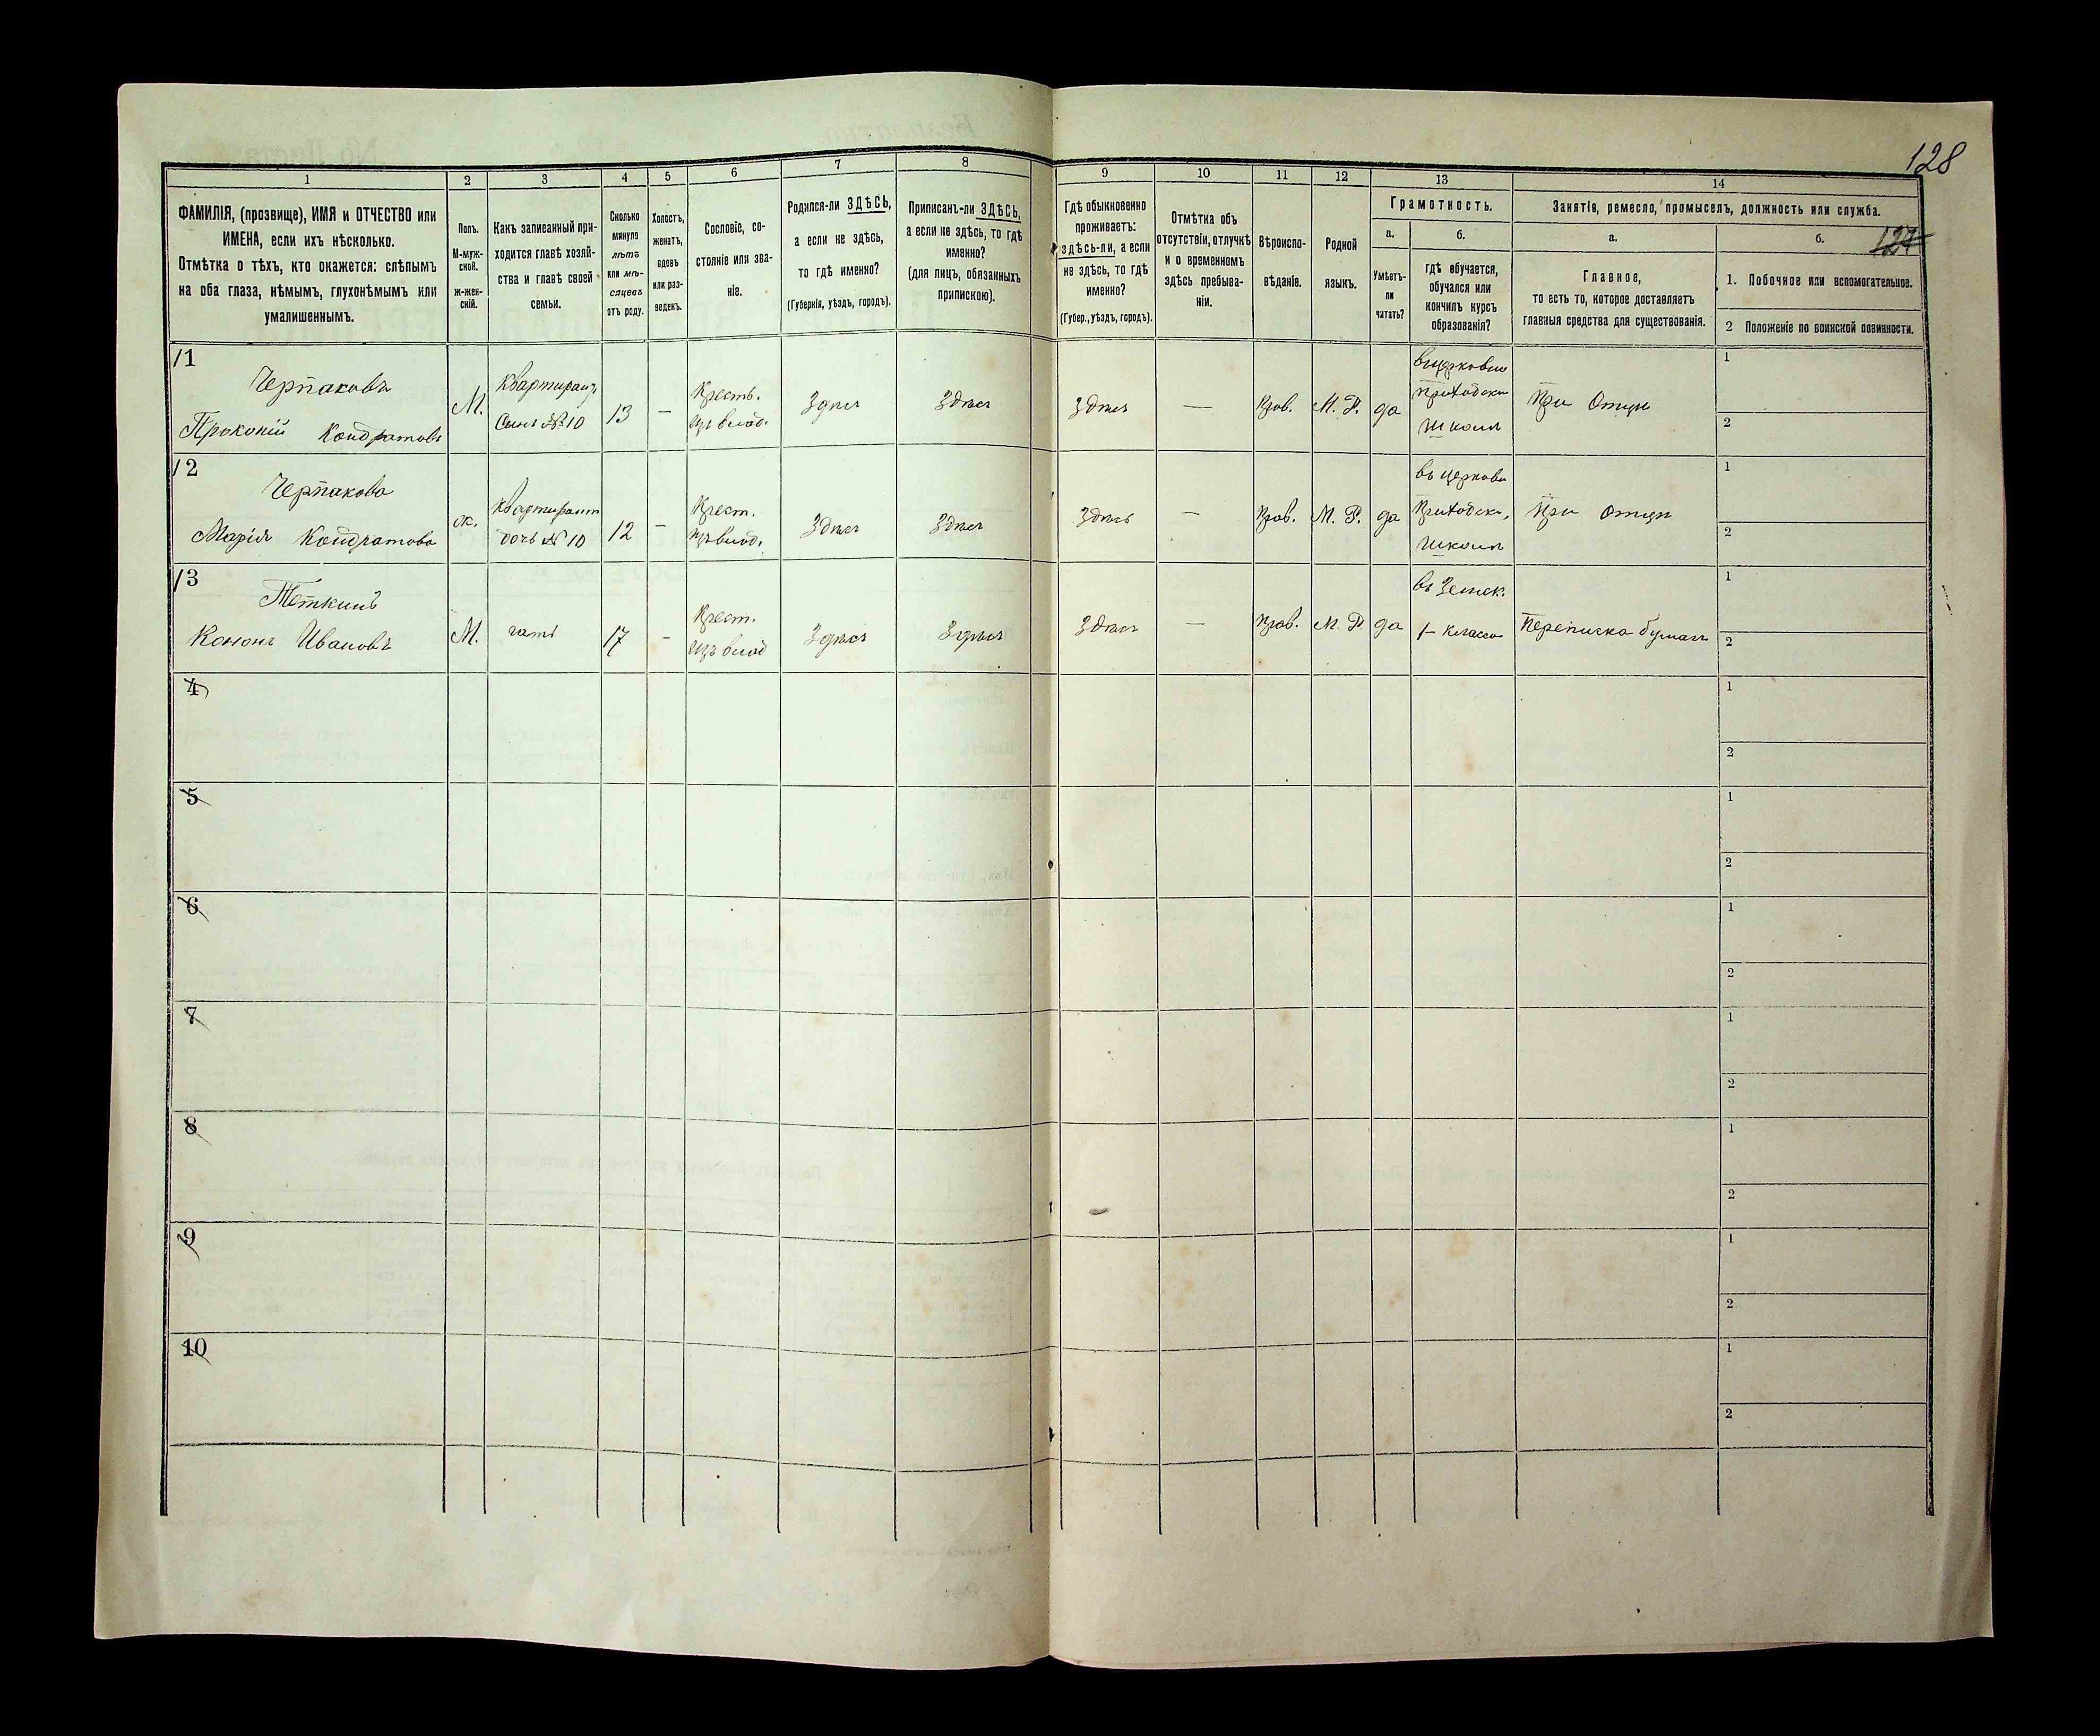 128
1 2 3 4 5 6 7 8 9 10 11 12 13 14
ФАМИЛІЯ, (прозвище), ИМЯ и ОТЧЕСТВО или
ИМЕНА, если ихъ нѣсколько.
Отмѣтка о тѣхъ, кто окажется: слѣпымъ
на оба глаза, нѣмымъ, глухонѣмымъ или
умалишеннымъ.
Полъ.
М-муж-
ской.
ж-жен-
скій.
Какъ записанный при-
ходится главѣ хозяй-
ства и главѣ своей
семьи.
Сколько
минуло
лѣтъ
или мѣ-
сяцевъ
отъ роду.
Холостъ,
женатъ,
вдовъ
или раз-
веденъ.
Сословіе, со-
стояніе или зва-
ніе.
Родился-ли ЗДѢСЬ,
а если не здѣсь,
то гдѣ именно?
(Губернія, уѣздъ, городъ).
Приписанъ-ли ЗДѢСЬ,
а если не здѣсь, то гдѣ
именно?
(для лицъ, обязанныхъ
припискою).
Гдѣ обыкновенно
проживаетъ:
здѣсь-ли, а если
не здѣсь, то гдѣ
именно?
(Губер., уѣздъ, городъ).
Отмѣтка объ
отсутствіи, отлучкѣ
и о временномъ
здѣсь пребыва-
ніи.
Вѣроиспо-
вѣданіе.
Родной
языкъ.
Грамотность.
а.
Умѣетъ-
ли
читать?
б.
гдѣ обучается,
обучался или
кончилъ курсъ
образованія?
Занятіе, ремесло, промыселъ, должность или служба.
а.
Главное,
то есть то, которое доставляетъ
главныя средства для существованія.
б.
1. Побочное или вспомогательное.
2 Положеніе по воинской повинности.
11
Черпаковъ
Прокопій Кондратовъ
М.
Квартирант
Сынъ № 10
13
—
Кресть.
Здѣсь
Здѣсь
Здѣсь
—
Прав.
М. Р.
да
Школѣ
При Отцѣ
1
2
12
Черпакова
Марія Кондратова
ж.
Квартирант
дочь № 10
12
—
Крест.
Здѣсь
Здѣсь
Здѣсь
—
Прав.
М. Р.
да
въ церковн
Приходск.
Школѣ
При Отцѣ
1
2
13
Теткинъ
Кононъ Ивановъ
М.
17
—
Крест.
Здѣсь
Здѣсь
Здѣсь
—
Прав.
М. Р
да
въ Земск.
1 классн
Переписка бумагъ
1
2
4
1
2
5
1
2
6
1
2
7
1
2
8
1
2
9
1
2
10
1
2